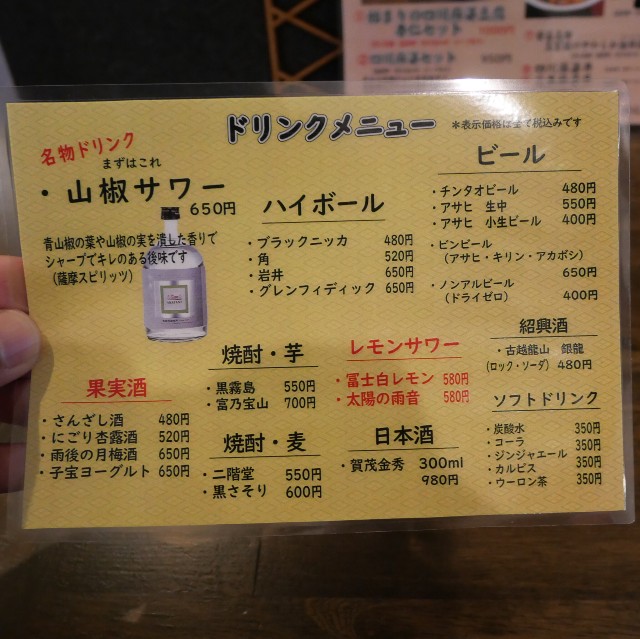 ドリンクメニュー
*表示価格は全て税込みです
名物ドリンク
まずはこれ
・山椒サワー
650円
青山椒の葉や山椒の実を潰した香りで
シャープでキレのある後味です
（薩摩スピリッツ）
ハイボール
・ブラックニッカ 480円
・角 520円
・岩井 650円
・グレンフィディック 650円
ビール
・チンタオビール 480円
・アサヒ 生中 550円
・アサヒ 小生ビール 400円
・ビンビール
（アサヒ・キリン・アカボシ）
650円
・ノンアルビール
（ドライゼロ） 400円
果実酒
・さんざし酒 480円
・にごり杏露酒 520円
・雨後の月梅酒 650円
・子宝ヨーグルト 650円
焼酎・芋
・黒霧島 550円
・富乃宝山 700円
焼酎・麦
・二階堂 550円
・黒さそり 600円
レモンサワー
・冨士白レモン 580円
・太陽の雨音 580円
日本酒
・賀茂金秀 300ml
980円
紹興酒
・古越龍山 銀龍
（ロック・ソーダ） 480円
ソフトドリンク
・炭酸水 350円
・コーラ 350円
・ジンジャエール 350円
・カルピス 350円
・ウーロン茶 350円